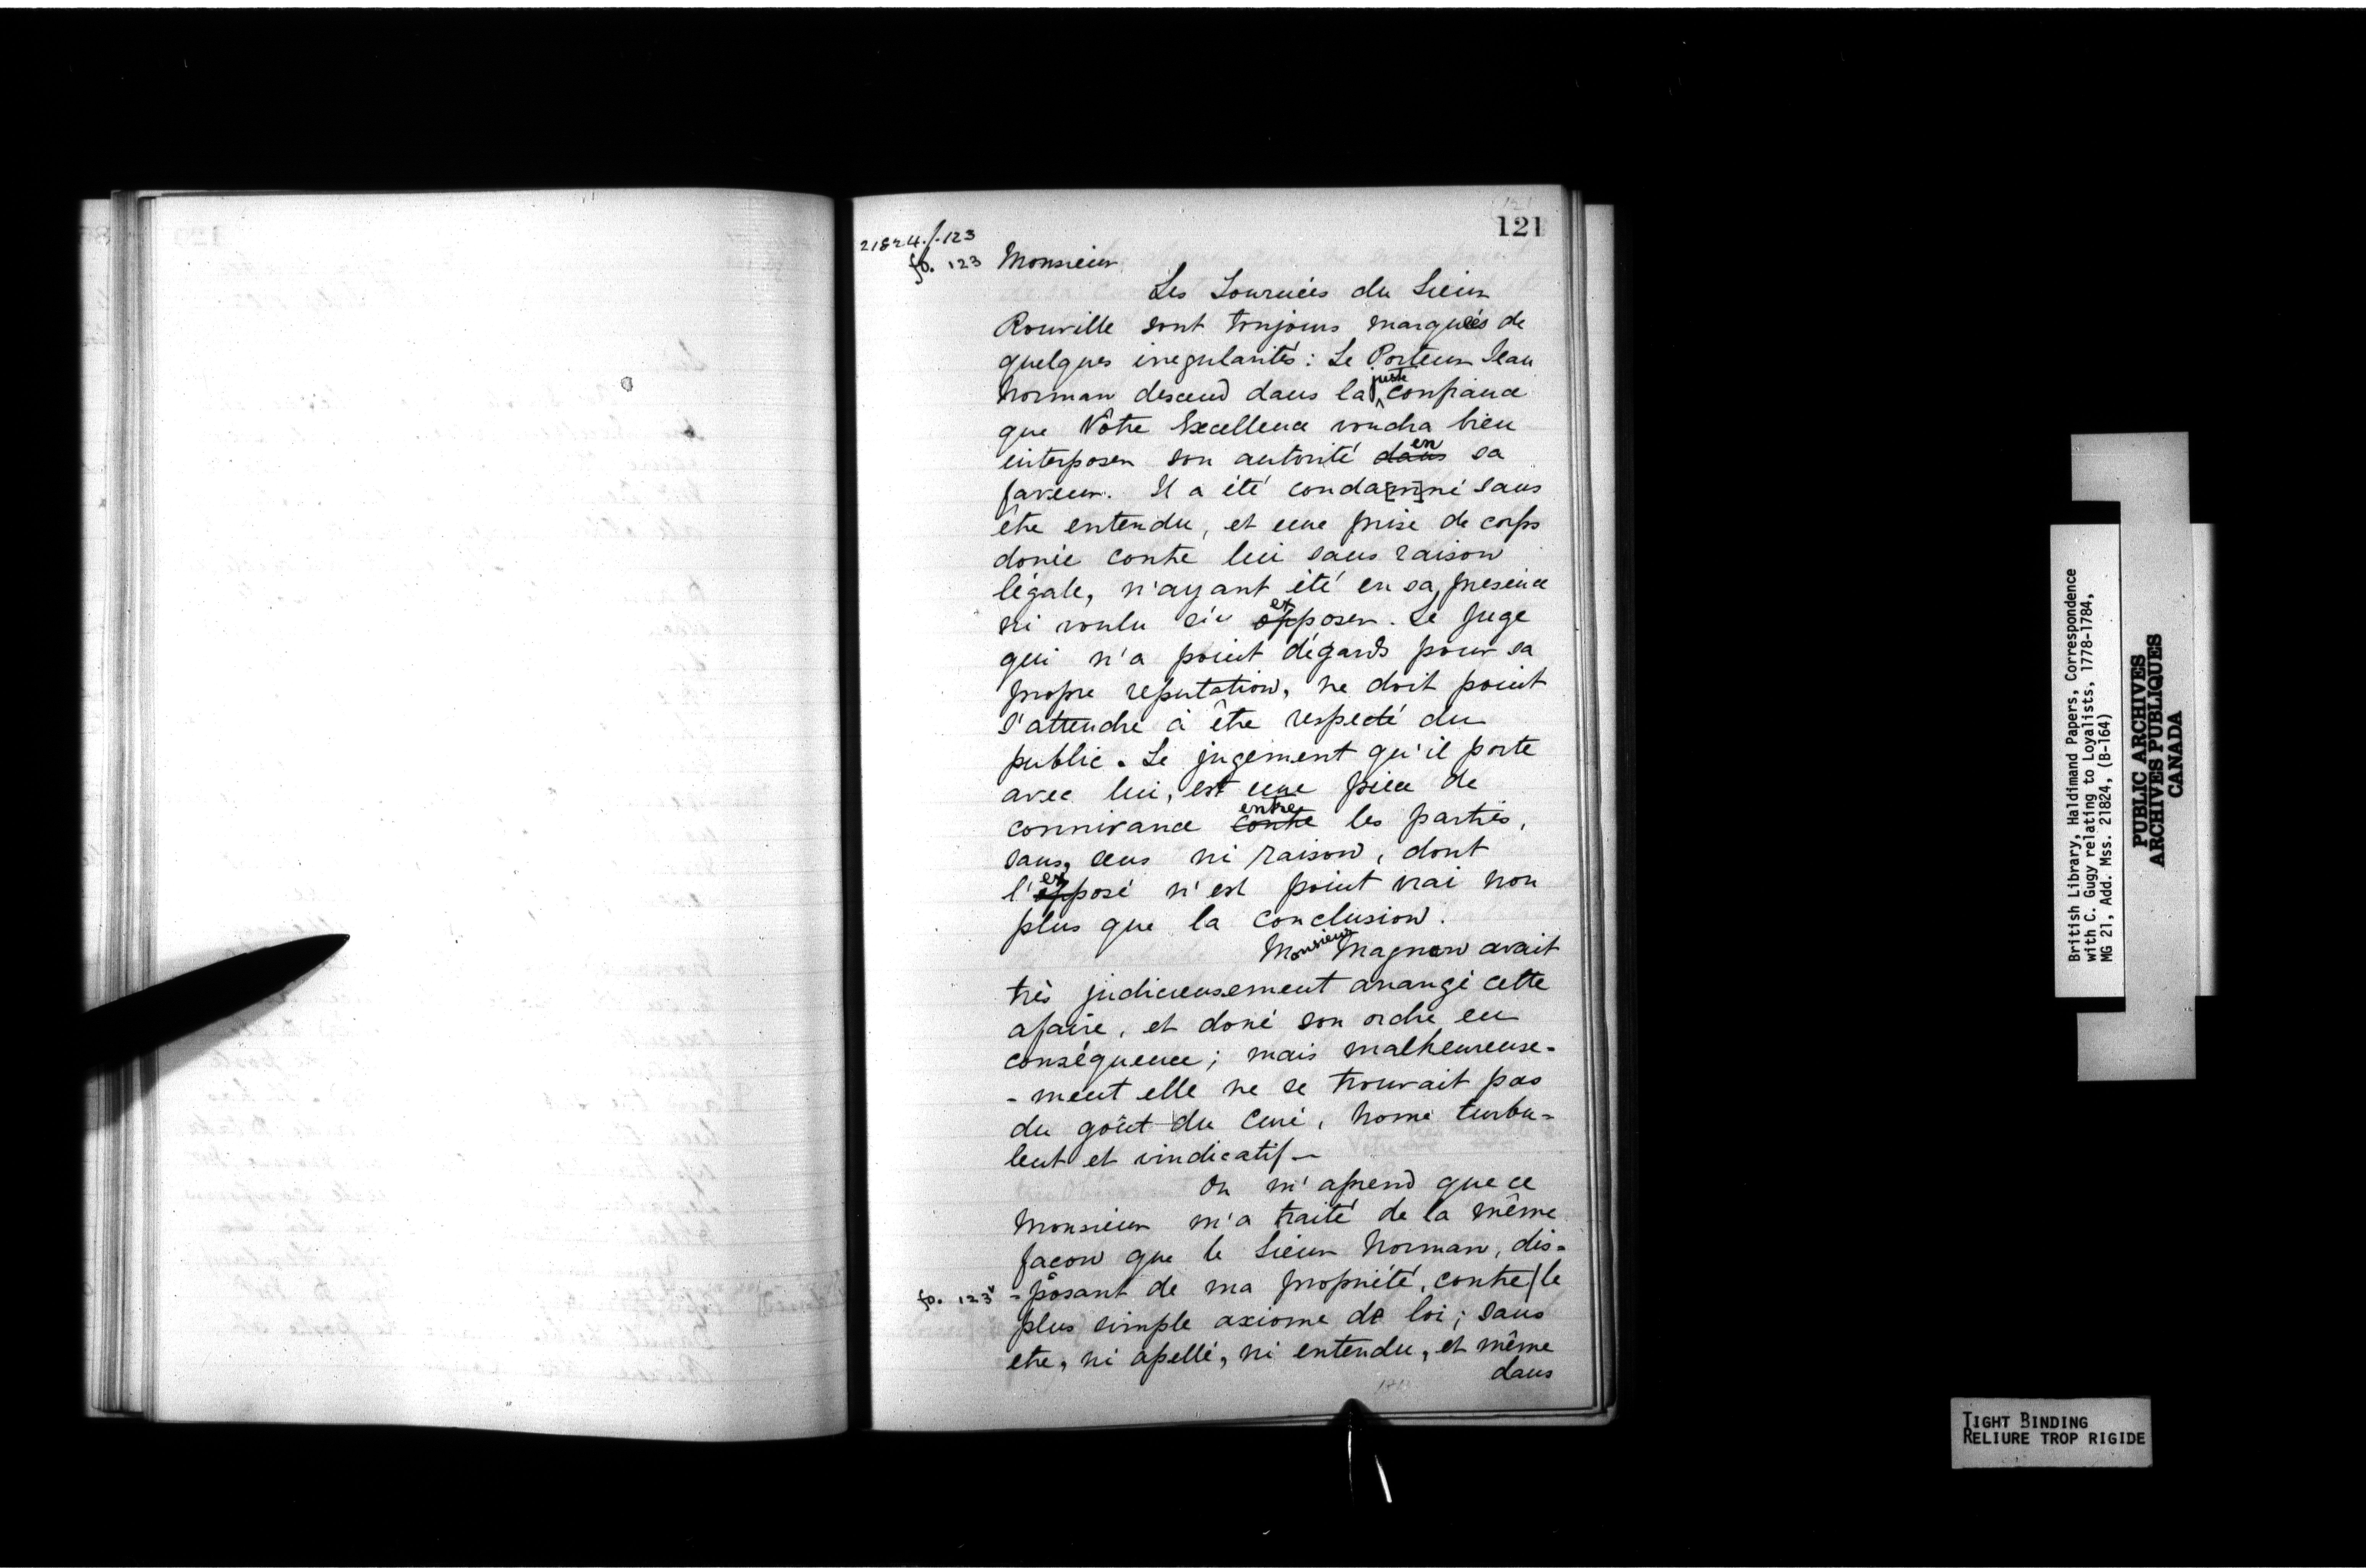 121
21824./.123
fo. 123 Monsieur
Les Tournées du Sieur
Rouville sont toujours marquées de
quelques iregularités: Le Porteur Jean
Norman descend dans la juste confiance
que Votre Excellence voudra bien
interposer son autorité dans en sa
faveur. Il a été conda[m]né sans
être entendu, et une prise de corps
donée contre lui sans raison
légale, n'ayant été en sa presence
ni voulu rien opposer ex. Le Juge
qui n'a point d'égards pour sa
propre reputation, ne doit point
s'attendre à être respecté du
public. Le jugement qu'il porte
avec lui, est une piece de
connivance contre entre les parties,
sans, sens ni raison, dont
l'opposé ex n'est point vrai non
plus que la conclusion.
Monsieur Magnan avait
très judicieusement arangé cette
afaire, et doné son ordre en
conséquence; mais malheureuse-
-ment elle ne se trouvait pas
du goût du Curé, home turbu-
lent et vindicatif—
On m'aprend que ce
Monsieur m'a traité de la même
facon que le Sieur Norman, dis-
fo. 123v -posant de ma propriété, contre/le
plus simple axiome de loi; sans
etre, ni apellé, ni entendu, et même
dans
British Library, Haldimand Papers, Correspondence
with C. Gugy relating to Loyalists, 1778-1784,
MG 21, Add. Mss. 21824, (B-164)
PUBLIC ARCHIVES
ARCHIVES PUBLIQUES
CANADA
TIGHT BINDING
RELIURE TROP RIGIDE